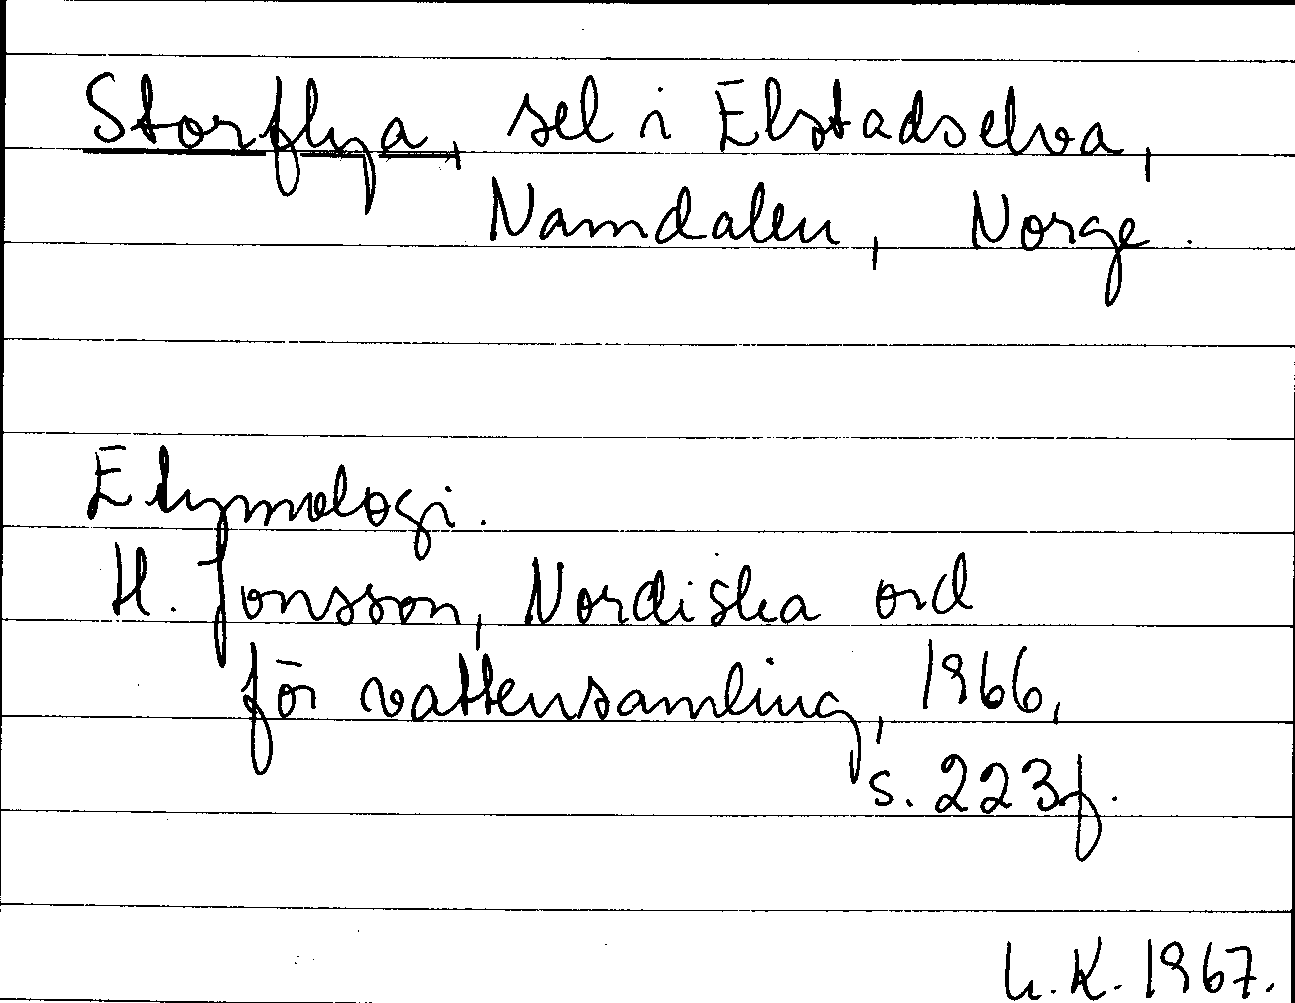 Storflya, sel i Elstadselva,
Namdalen, Norge.
Etymologi.
H. Jonsson, Nordiska ord
för vattensamling, 1966,
s. 223f.
L.K. 1967.